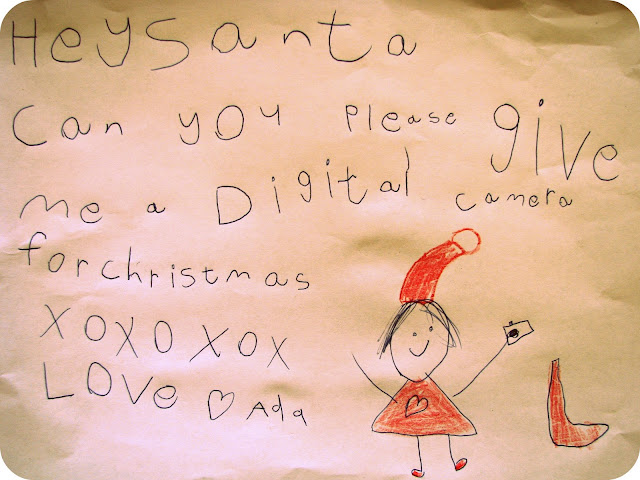 Hey Santa
Can you please give
me a Digital camera
for christmas
XOXOXOX
LOVe ♡ Ada